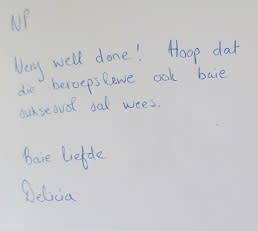 NP
Very well done! Hoop dat
die beroepslewe ook baie
suksesvol sal wees.
Baie liefde
Delicia